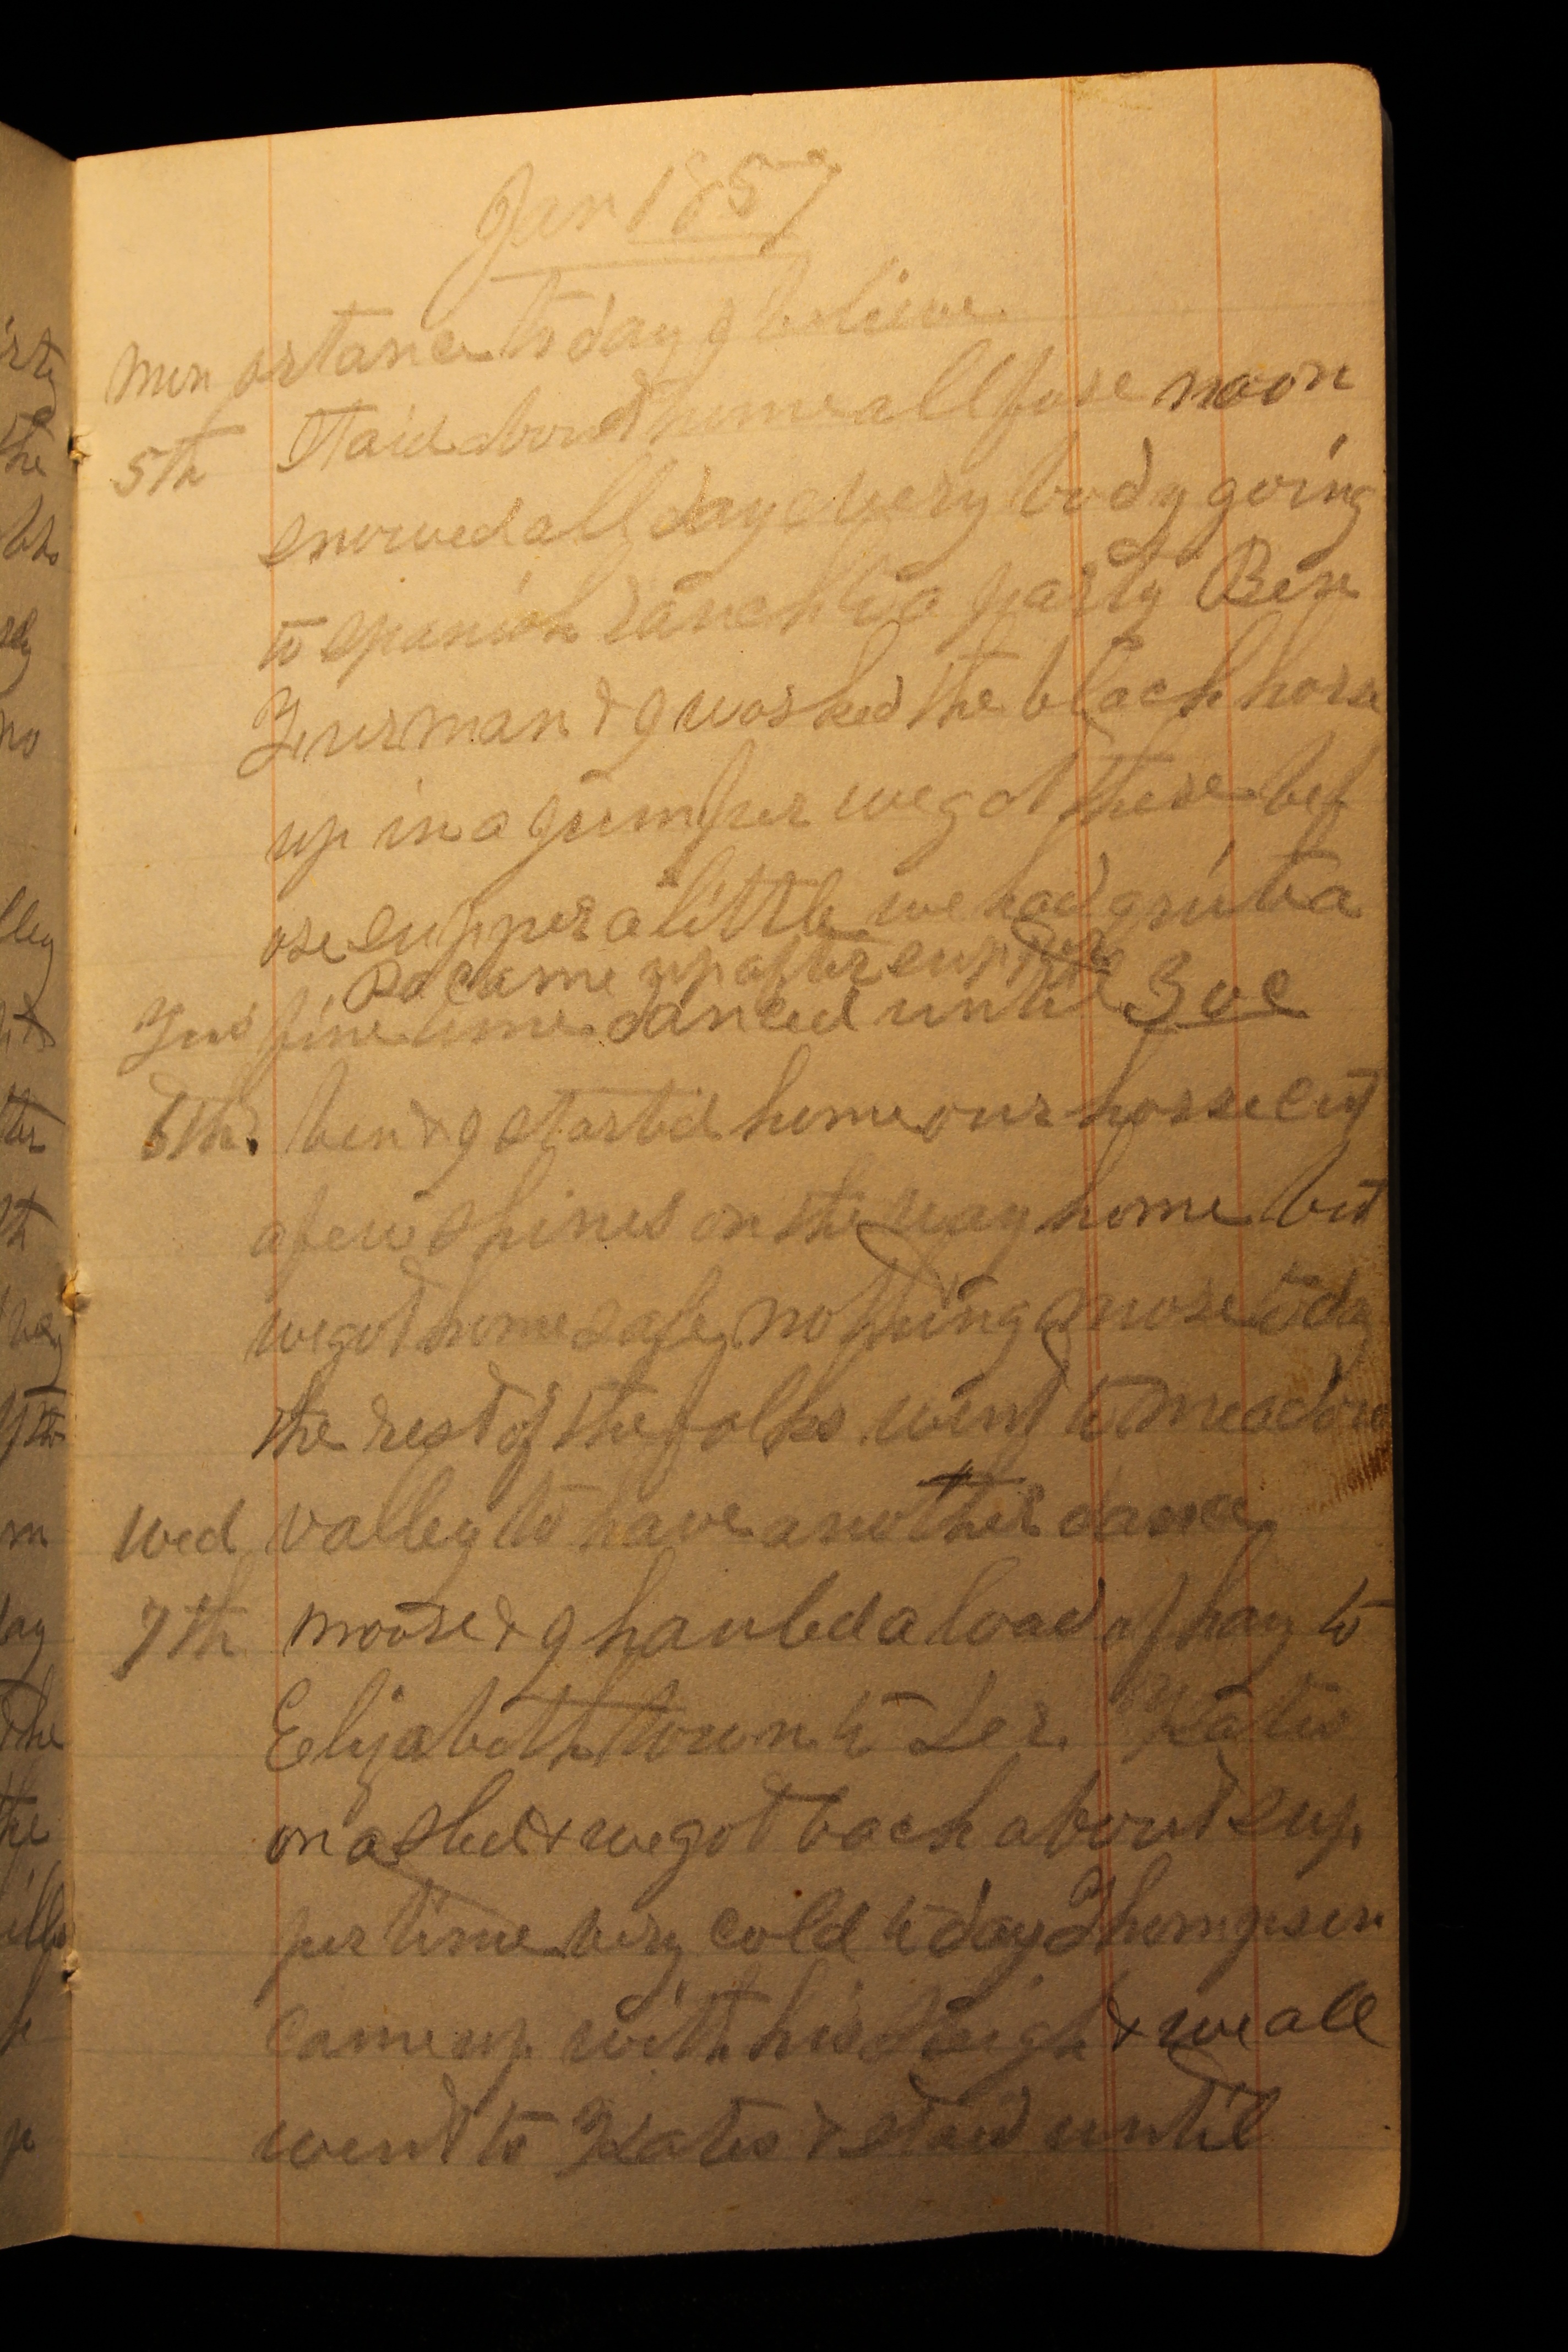 Jan 1857
Mon ortance to day I believe
5th Staid about home all fore noon
snowed all day every body going
to spanish ranch to a party Ben
& I worked the black horse
up in a gumper we got there bef
ore supper a little we had quite a
Pa came up after supper
fine time danced until 3 oc
6th ben & I started home our horse cut
a few shines on the way home but
we got home safe nothing more to day
the rest of the folks went to meadow
Wed valley to have another dance
7th moose & I hauled a load of hay to
Elizabethtown to
on a sled & we got back about sup
per time very cold to day Thompson
came up with his sleigh & we all
went to & staid until